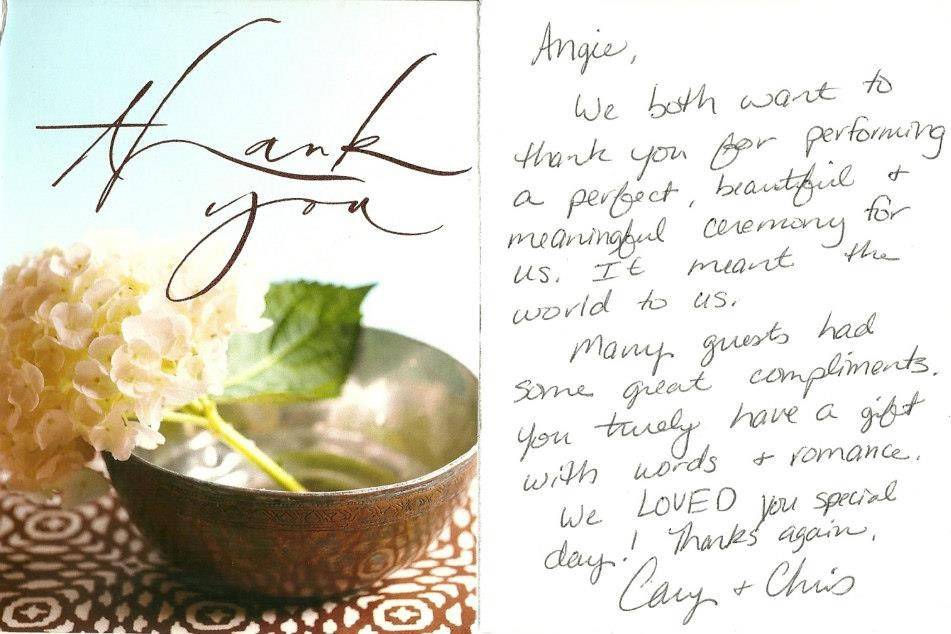 thank
you
Angie,
We both want to
thank you for performing
a perfect, beautiful +
meaningful ceremony for
us. It meant the
world to us.
Many guests had
some great compliments.
You truely have a gift
with words + romance.
We LOVED you special
day! Thanks again,
Cary + Chris